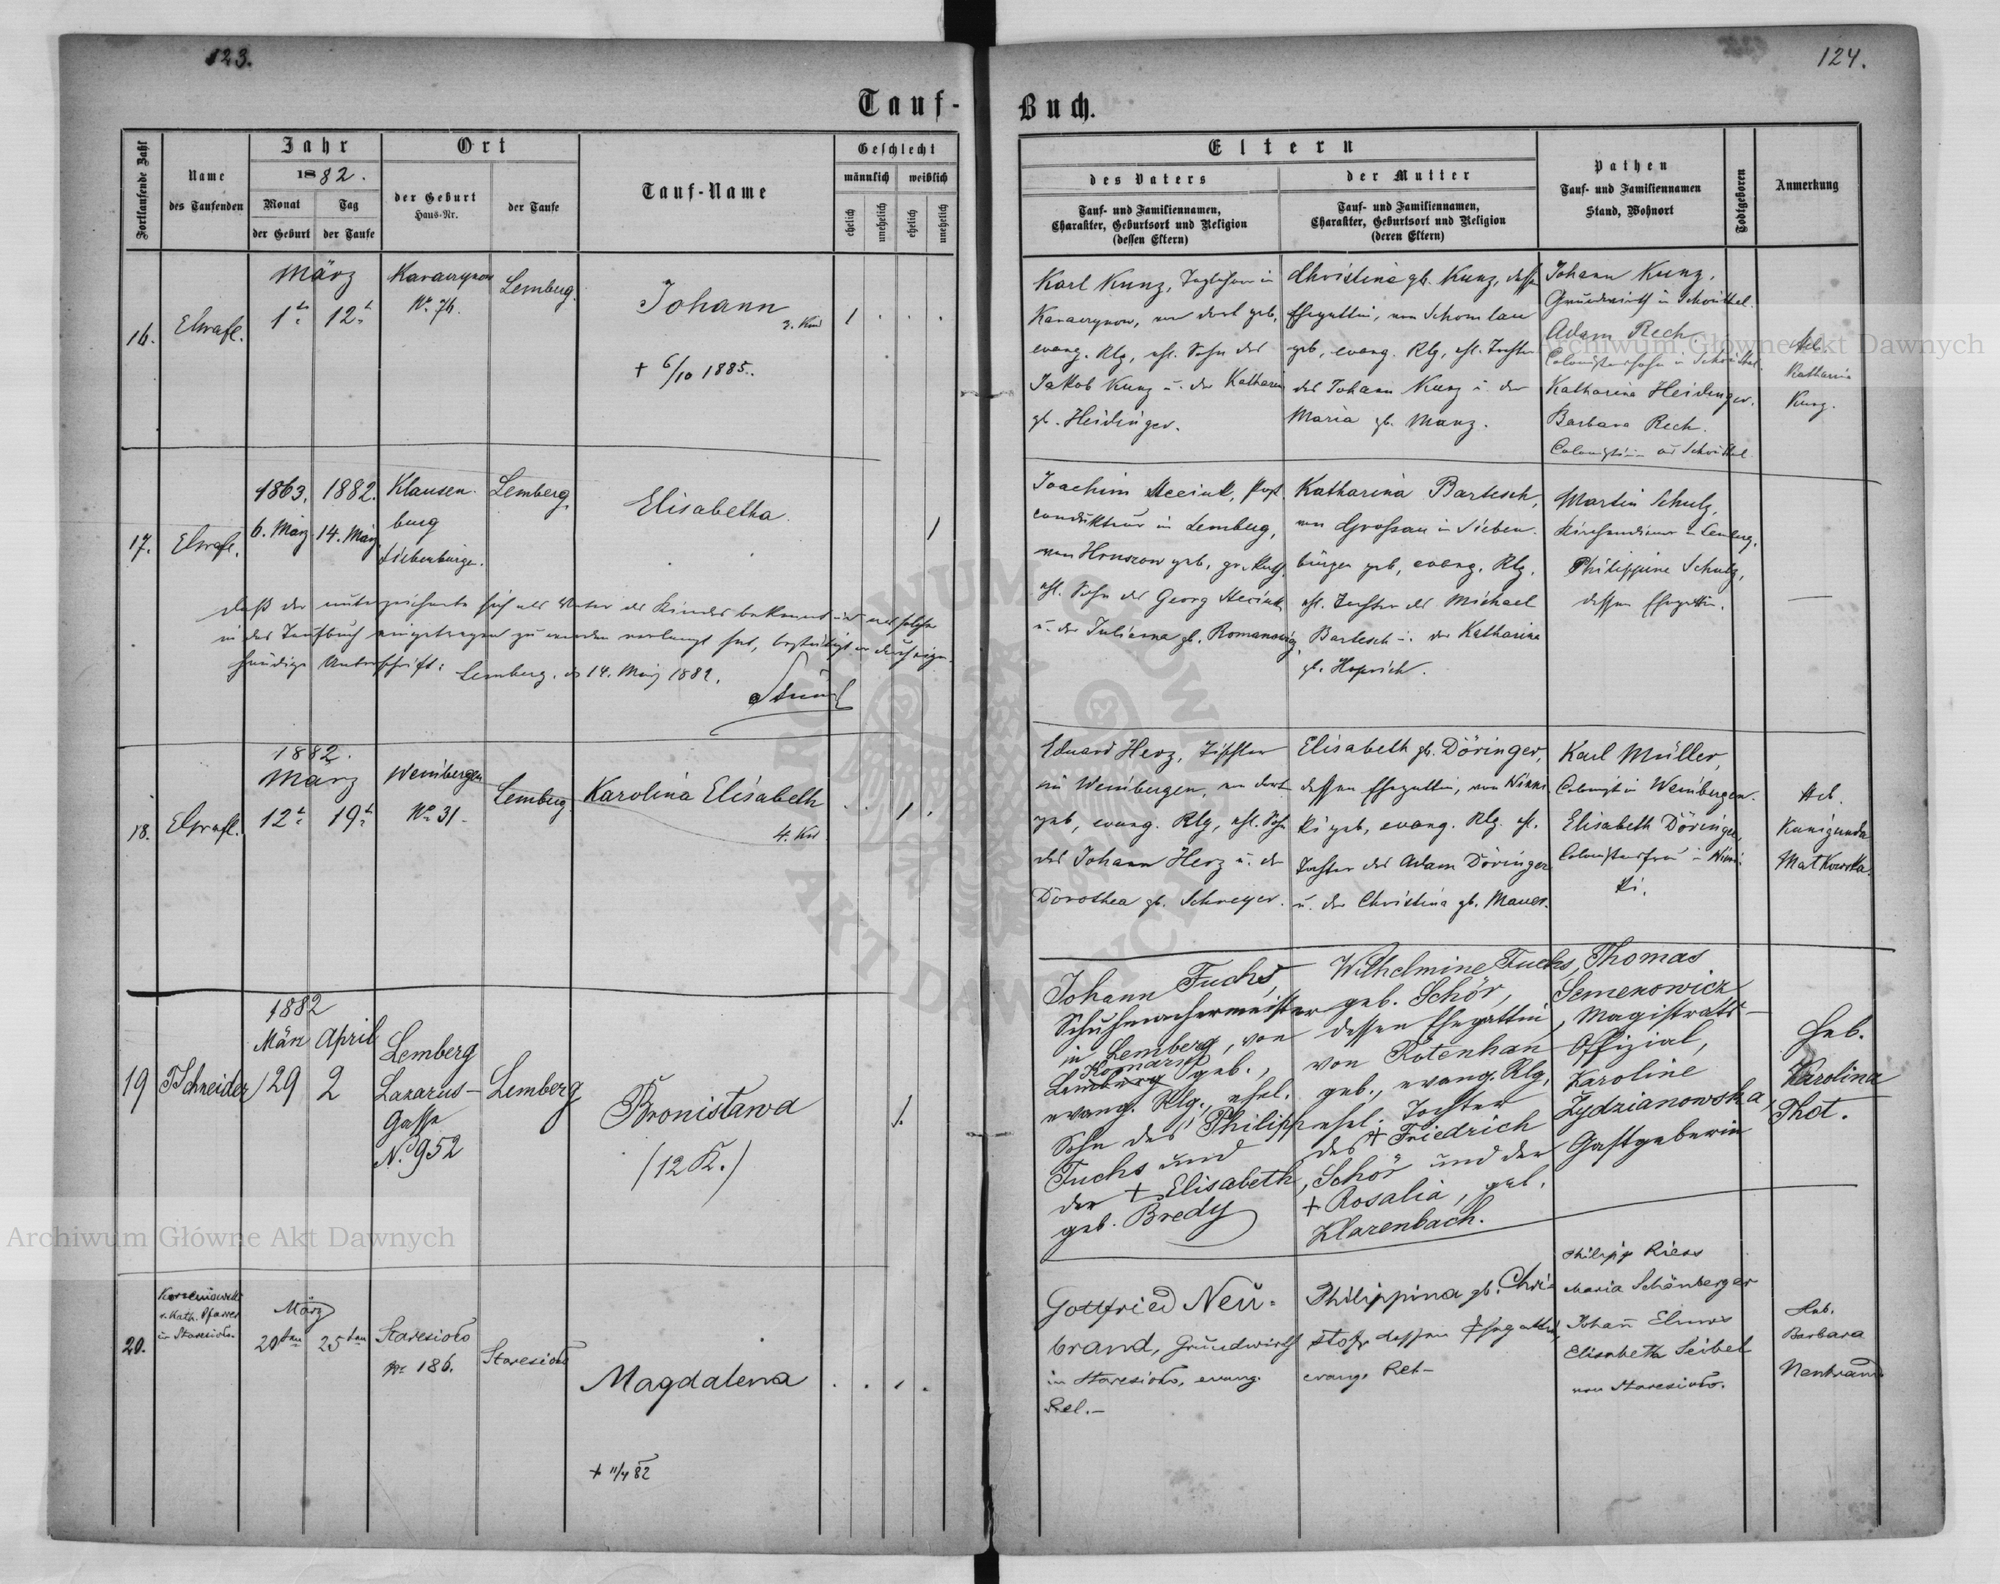 123.
124.
Tauf-
Buch.
Fortlaufende Zahl
Name
des Taufenden
Jahr
1882.
Monat
der Geburt
Tag
der Taufe
Ort
der Geburt
Haus-Nr.
der Taufe
Tauf-Name
Geschlecht
männlich
weiblich
ehelich
unehelich
ehelich
unehelich
Eltern
des Vaters
Tauf- und Familiennamen,
Charakter, Geburtsort und Religion
(dessen Eltern)
der Mutter
Tauf- und Familiennamen,
Charakter, Geburtsort und Religion
(deren Eltern)
Pathen
Tauf- und Familiennamen
Stand, Wohnort
Todtgeboren
Anmerkung
16.
März
1t.
12t.
No. 76.
Lemberg.
Johann
3. Kind
+ 6/10 1885.
Karl Kunz, Taglöhner in
von dort geb,
evang. Rlg, ehl. Sohn des
Jakob Kunz u. der Katharina
gb. Heidinger.
Christina gb. Kunz, dessen
Ehegattin, von
geb, evang. Rlg, ehl. Tochter
des Johann Kunz u. der
Maria gb. Manz.
Johann Kunz,
Grundwirth in
Adam Rech
Colonistensohn in
Katharina Heidinger.
Barbara Rech.
Heb.
Katharina
Kunz.
17.
1863.
6. März
1882.
14. März
Klausen-
burg
Siebenbürgen.
Lemberg.
Elisabetha.
Joachim
condukteur in Lemberg,
geb,
ehl. Sohn des Georg
u. der Julianna gb. Romanowicz
Katharina Bartesch,
von Großau in Sieben-
bürgen geb, evang. Rlg,
ehl. Tochter des Michael
Bartesch u. der Katharina
Martin Schulz,
Kirchendiener in Lemberg,
Philippine Schulz,
dessen Ehegattin.
daß der unterzeichnete sich als Vater des Kindes bekannt und als solcher
in das Taufbuch eingetragen zu werden verlangt hat, bestätigt er durch eigen-
händige Unterschrift:
Lemberg, 14. März 1882.
18.
1882.
März
12t.
19t.
Weinbergen
No 31.
Lemberg
Karolina Elisabeth
4. Kd
Eduard Herz, Tischler
in Weinbergen, von dort
geb, evang. Rlg, ehl. Sohn
des Johann Herz u. der
Dorothea gb. Schreyer.
Elisabeth gb. Döringer,
dessen Ehegattin, von Winni-
ki geb, evang. Rlg. ehl.
Tochter des Adam Döringer
u. der Christina gb. Mauer.
Karl Müller,
Colonist in Weinbergen.
Elisabeth Döringer,
Colonistenfrau in Winni-
ki.
Heb.
Kunigunda
Matkowska.
19
Schneider
1882
März
29
April
2
Lemberg
Lazarus-
Gasse
N. 952
Lemberg
Bronisława
(12 K.)
Johann Fuchs,
Schuhmachermeister
in Lemberg, von
Lemberg geb.,
evang. Rlg., ehel.
Sohn des Philipp
Fuchs und
der + Elisabeth,
geb. Bredy
Wilhelmine Fuchs,
geb. Schör,
dessen Ehegattin,
von Rotenhan
geb., evang. Rlg,
ehel. Tochter
des + Friedrich
Schör und der
+ Rosalia, geb.
Klarenbach.
Thomas
Semenowicz
Magistrats-
Offizial,
Karoline
Zydzianowska,
Gastgeberin
Heb.
Karolina
Thot.
20.
r. kath. Pfarrer
in Staresioło.
März
20ten
25ten
Staresioło
No 186.
Staresioło
Magdalena
+ 11/4 82
Gottfried Neu-
brand, Grundwirth
in Staresioło, evang.
Rel.-
Philippina gb. Chri-
stof, dessen Ehegattin,
evang. Rel-
Philipp Riess
Maria Schönberger
Johann Elmis
Elisabeth Seibel
von Staresioło.
Heb.
Barbara
Neubrand
Archiwum Główne Akt Dawnych
Archiwum Główne Akt Dawnych